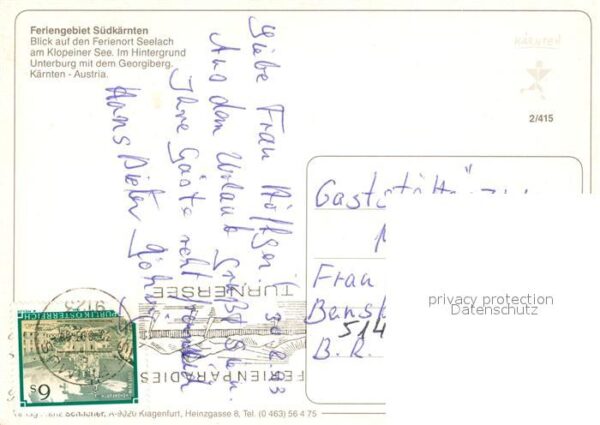 Feriengebiet Südkärnten
Blick auf den Ferienort Seelach
am Klopeiner See. Im Hintergrund
Unterburg mit dem Georgiberg.
Kärnten - Austria.
KÄRNTEN
2/415
Liebe Frau
Aus dem Urlaub grüßt Sie u.
Ihre Gäste recht herzlich
Hans Dieter
Frau
Bensb
514
B. R.
privacy protection
Datenschutz
TURNERSEE
FERIENPARADIES
9125
REPUBLIK ÖSTERREICH
S 6
Verlag Franz Schilcher, A-9020 Klagenfurt, Heinzgasse 8, Tel. (0 463) 56 4 75